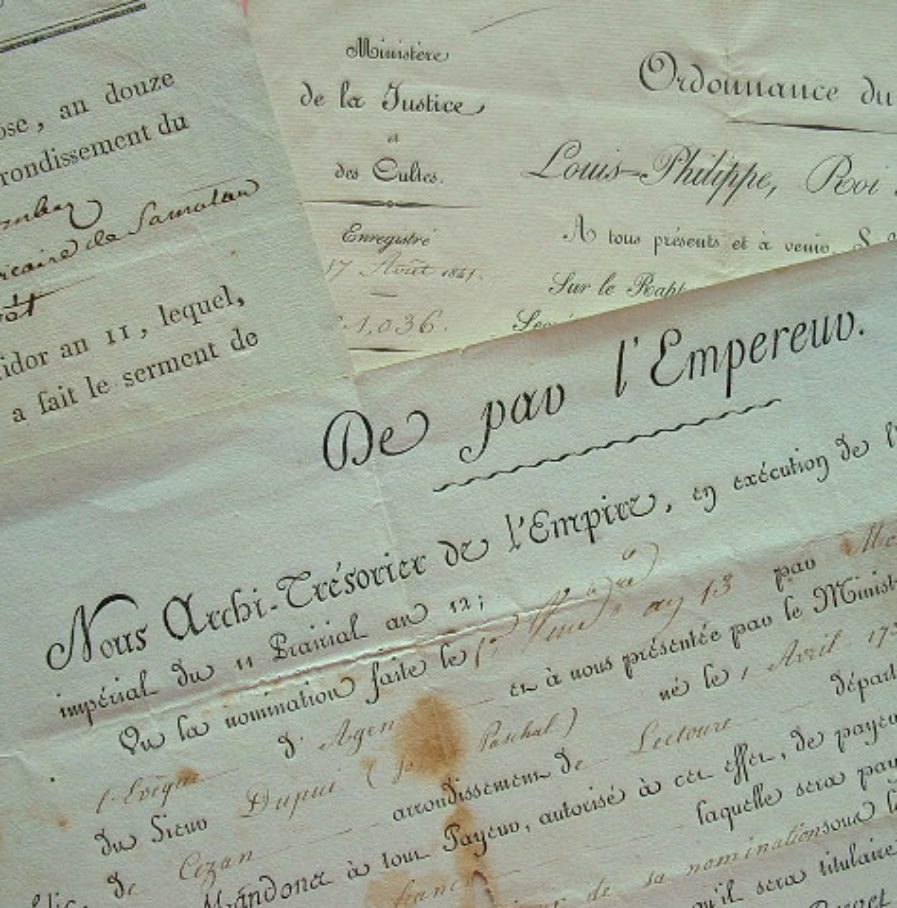 ose, au douze
rondissement du
icaire de Samatan
idor an 11, lequel,
a fait le serment de
Ministère
de la Justice
a
des Cultes.
Enregistré
17 Août 1841.
1,036.
Ordonnance du
Louis-Philippe, Roi
A tous présents et à venir, S
Sur le Rapt
De par l'Empereur.
Nous Archi-Trésorier de l'Empire, en exécution de l'
impérial du 11 Prairial an 12;
Vu la nomination faite le 1er Vend. an 13 par
l'Evêque d'Agen et à nous présentée par le Minist
du Sieur Dupui ( Paschal) né le 1 Avril 17
de Cezan arrondissement de Lectoure départ
Mandons à tout Payeur, autorisé à cet effet, de payer
francs laquelle sera pay
de sa nomination sous l
qu'il sera titulaire